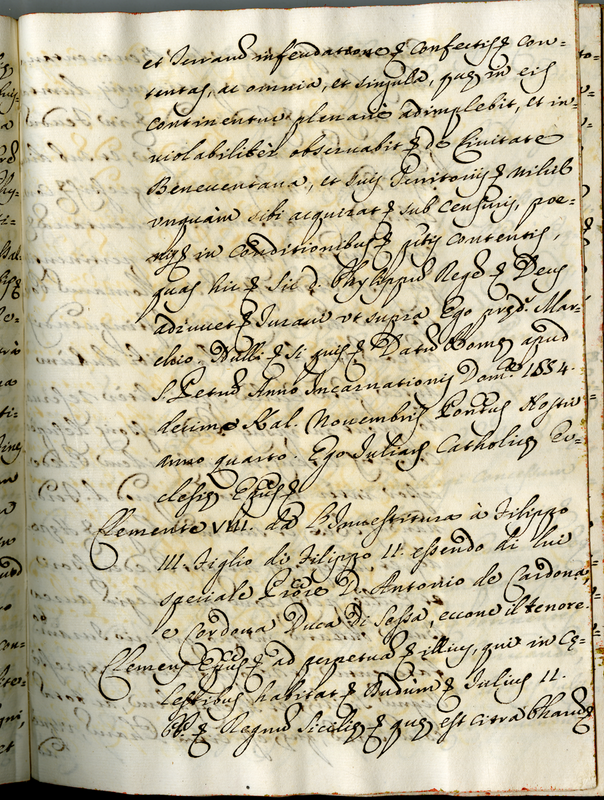 et Terrarũ infeudatione & confectis & con-
tentas, ac omnia, et singula, quæ in eis
continentur plenariè adimplebit, et in-
violabiliter observabit & de Civitate
Beneventana, et suis Territorijs & nihil
unquam sibi acquirat & sub Censuris, poe-
nisq in Conditionibus & contentis,
quas hic & Sic D. Phylippũ Regẽ & Deus
adiuuet & Iuraui ut supra Ego Mar-
& si quis & Datũ Romæ apud
S. Petrũ Anno Incarnationis Dom.ce 1554.
decimo Kal. Novembris Pontũs Nostri
anno quarto. Ego Iulius Catholicæ Ec-
clesiæ Epũs &
Clemente VIII. dà l'Investitura à Filippo
III. figlio di Filippo II. essendo di lui
speciale Prõre D. Antonio de Cardona,
e Cordova Duca di Sessa, eccone il tenore.
Clemens Epũs & ad perpetuã & illius, qui in Cę-
lestibus habitat & dudum & Iulius II.
PP. & Regnũ Siciliæ & quæ est citra Pharũ &